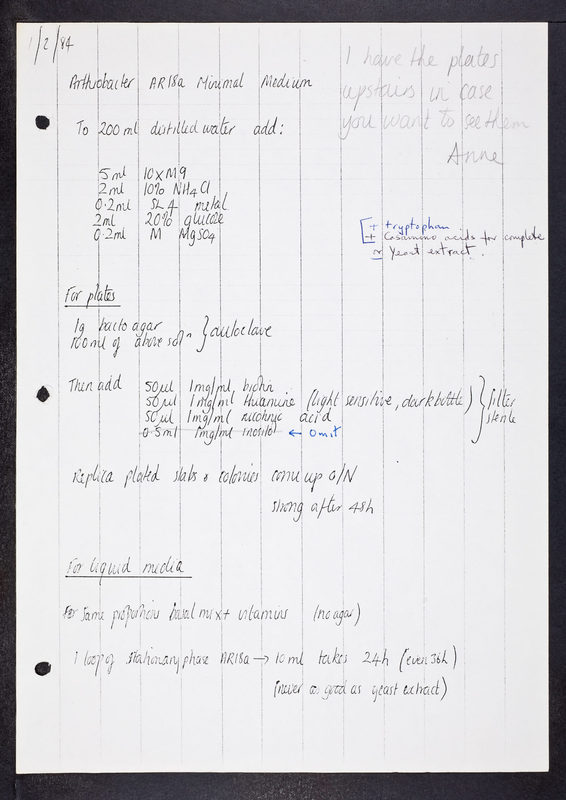 1/2/84
I have the plates
upstairs in case
you want to see them
Anne
Arthrobacter AR18a Minimal Medium
To 200ml distilled water add:
5ml 10xM9
2ml 10% NH4Cl
0.2ml SL4 metal
2ml 20% glucose
0.2ml M MgSO4
+ tryptophan
+ Casamino acids for complete
~ Yeast extract.
For plates
1g bacto agar
100ml of above soln } autoclave
Then add 50µl 1mg/ml, biotin
50µl 1mg/ml thiamine (light sensitive, dark bottle) } filter
50µl 1mg/ml nicotinic acid sterile
0.5ml 1mg/ml inositol ← omit
Replica plated stabs & colonies come up O/N
strong after 48h
For liquid media
For same proportions basal mix + vitamins (no agar)
1 loop of stationary phase AR18a → 10ml takes 24h (even 36h)
(never as good as yeast extract)